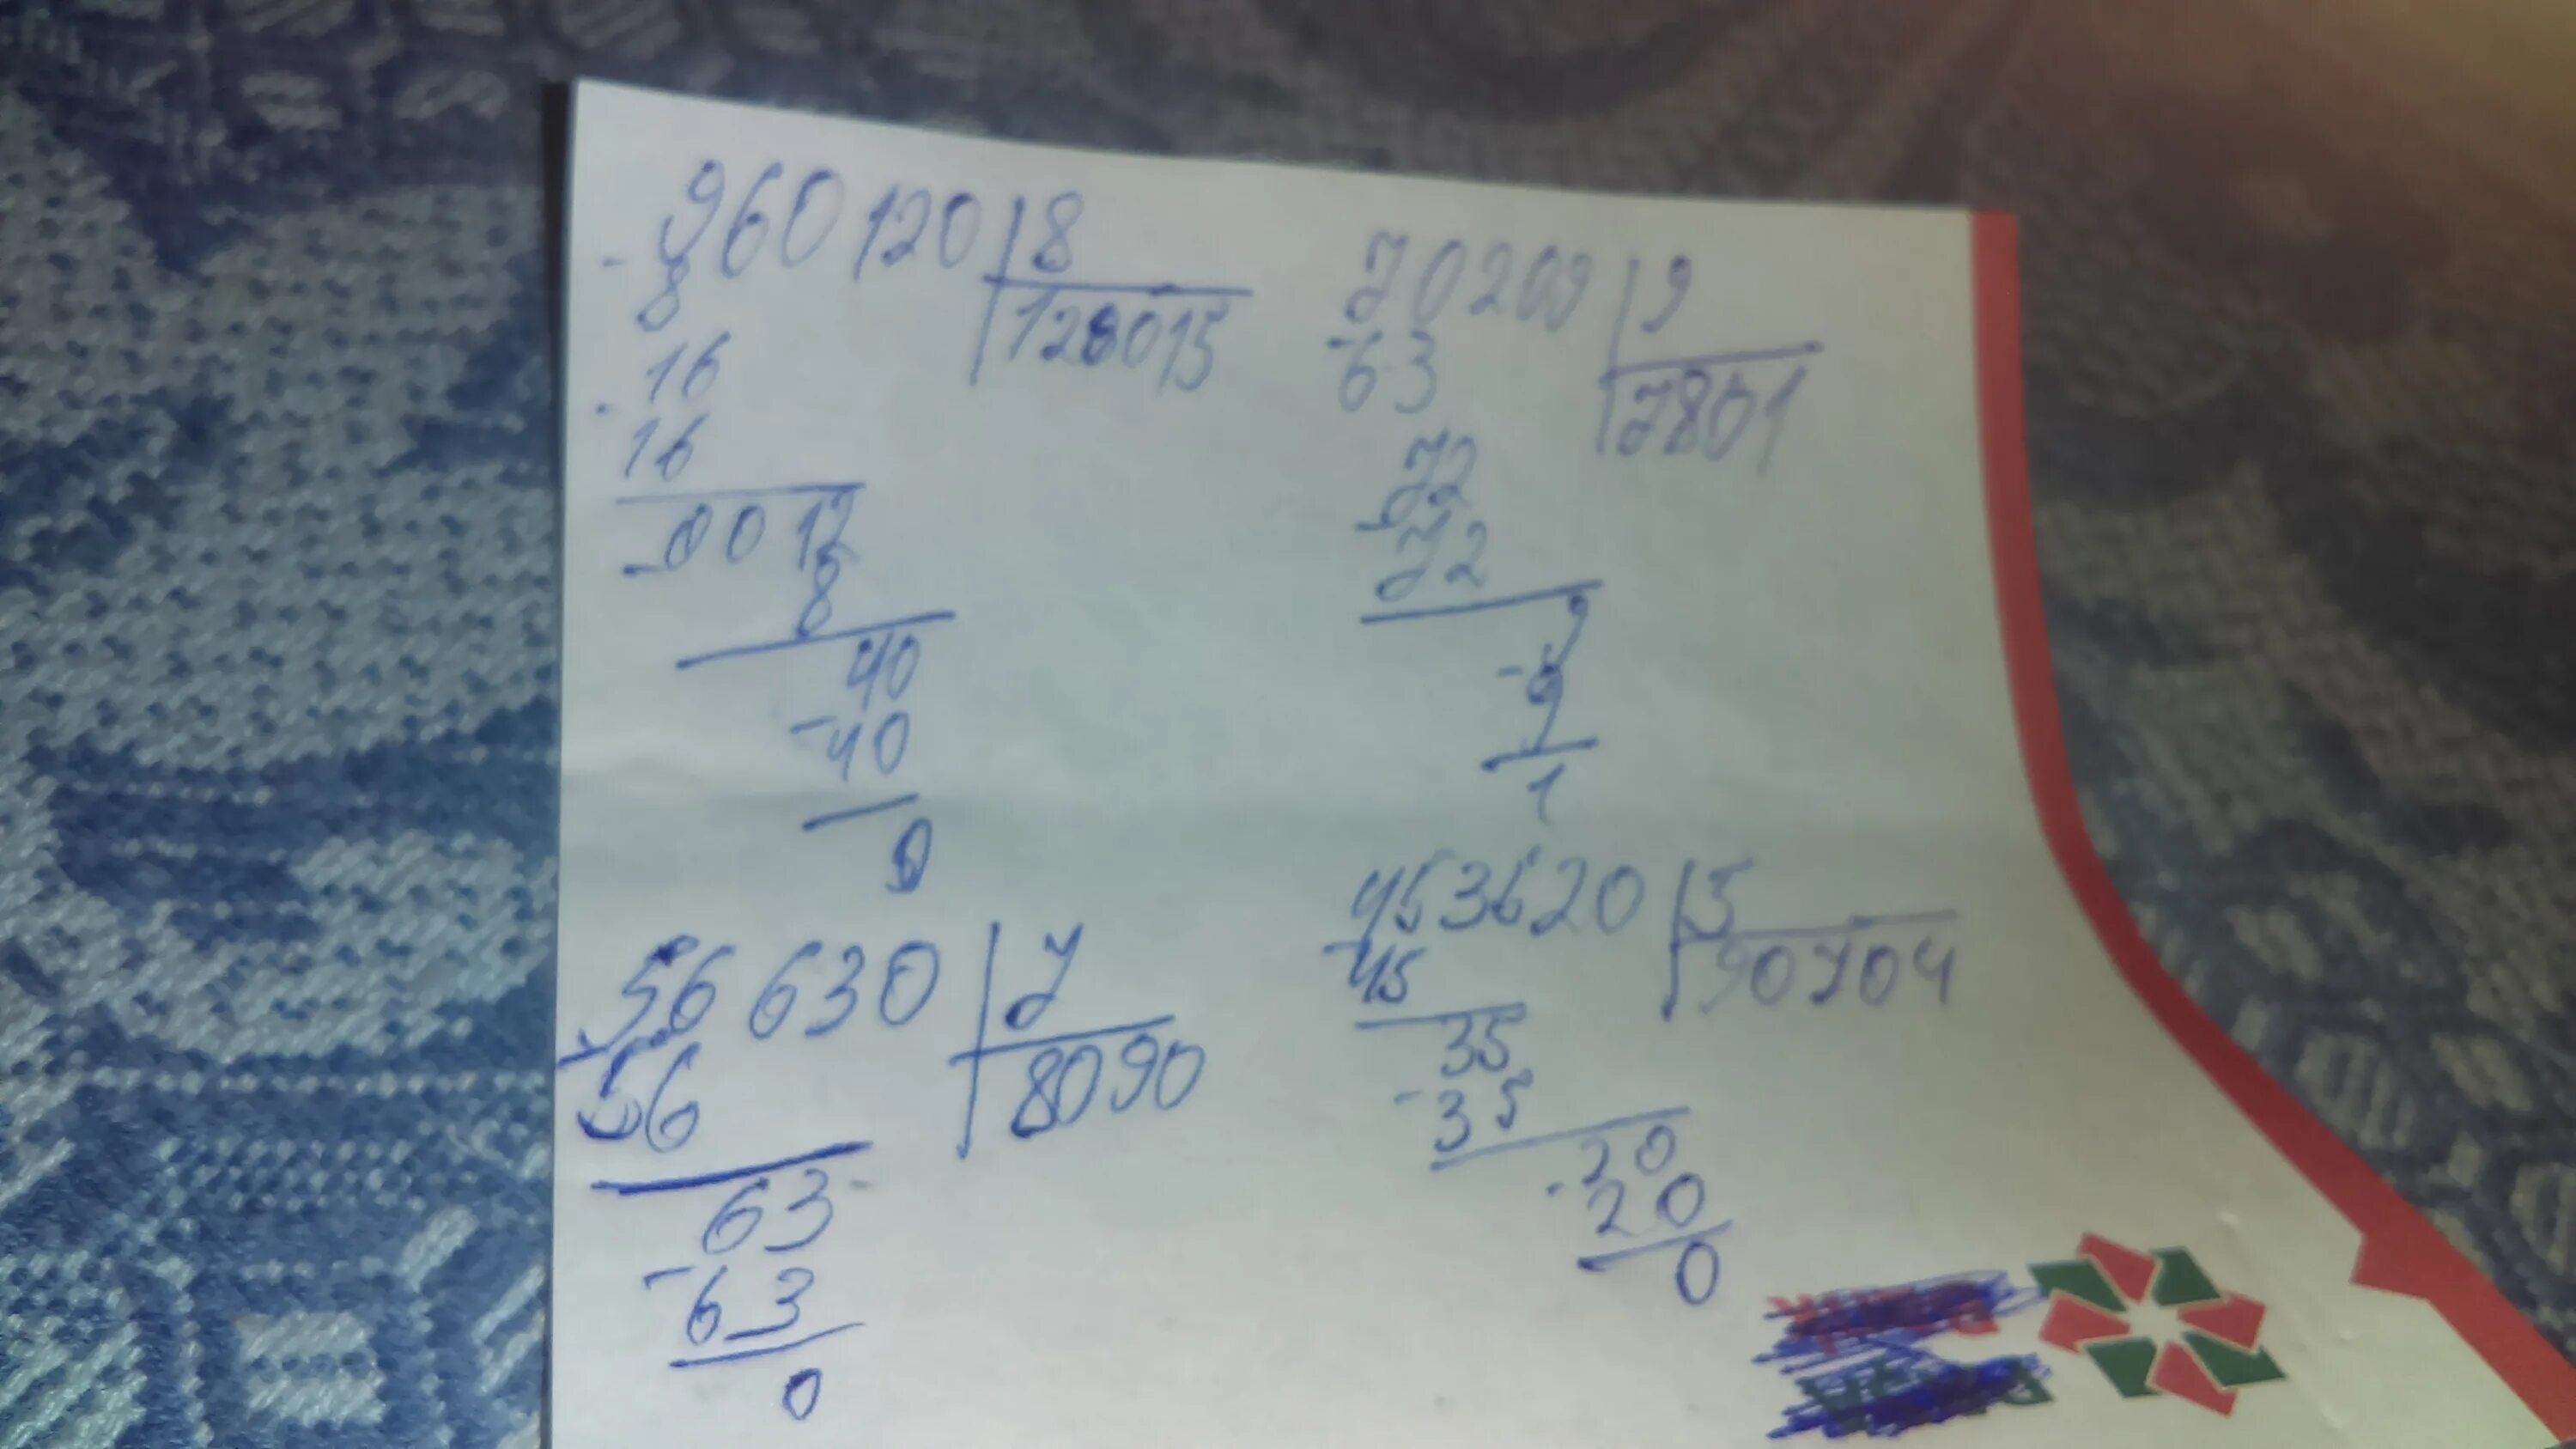 960120 8
8 120015
16
16
0012
8
40
40
0
70209 9
63 7801
72
72
9
9
1
56630 7
56 8090
63
63
0
453620 5
45 90704
35
35
20
20
0